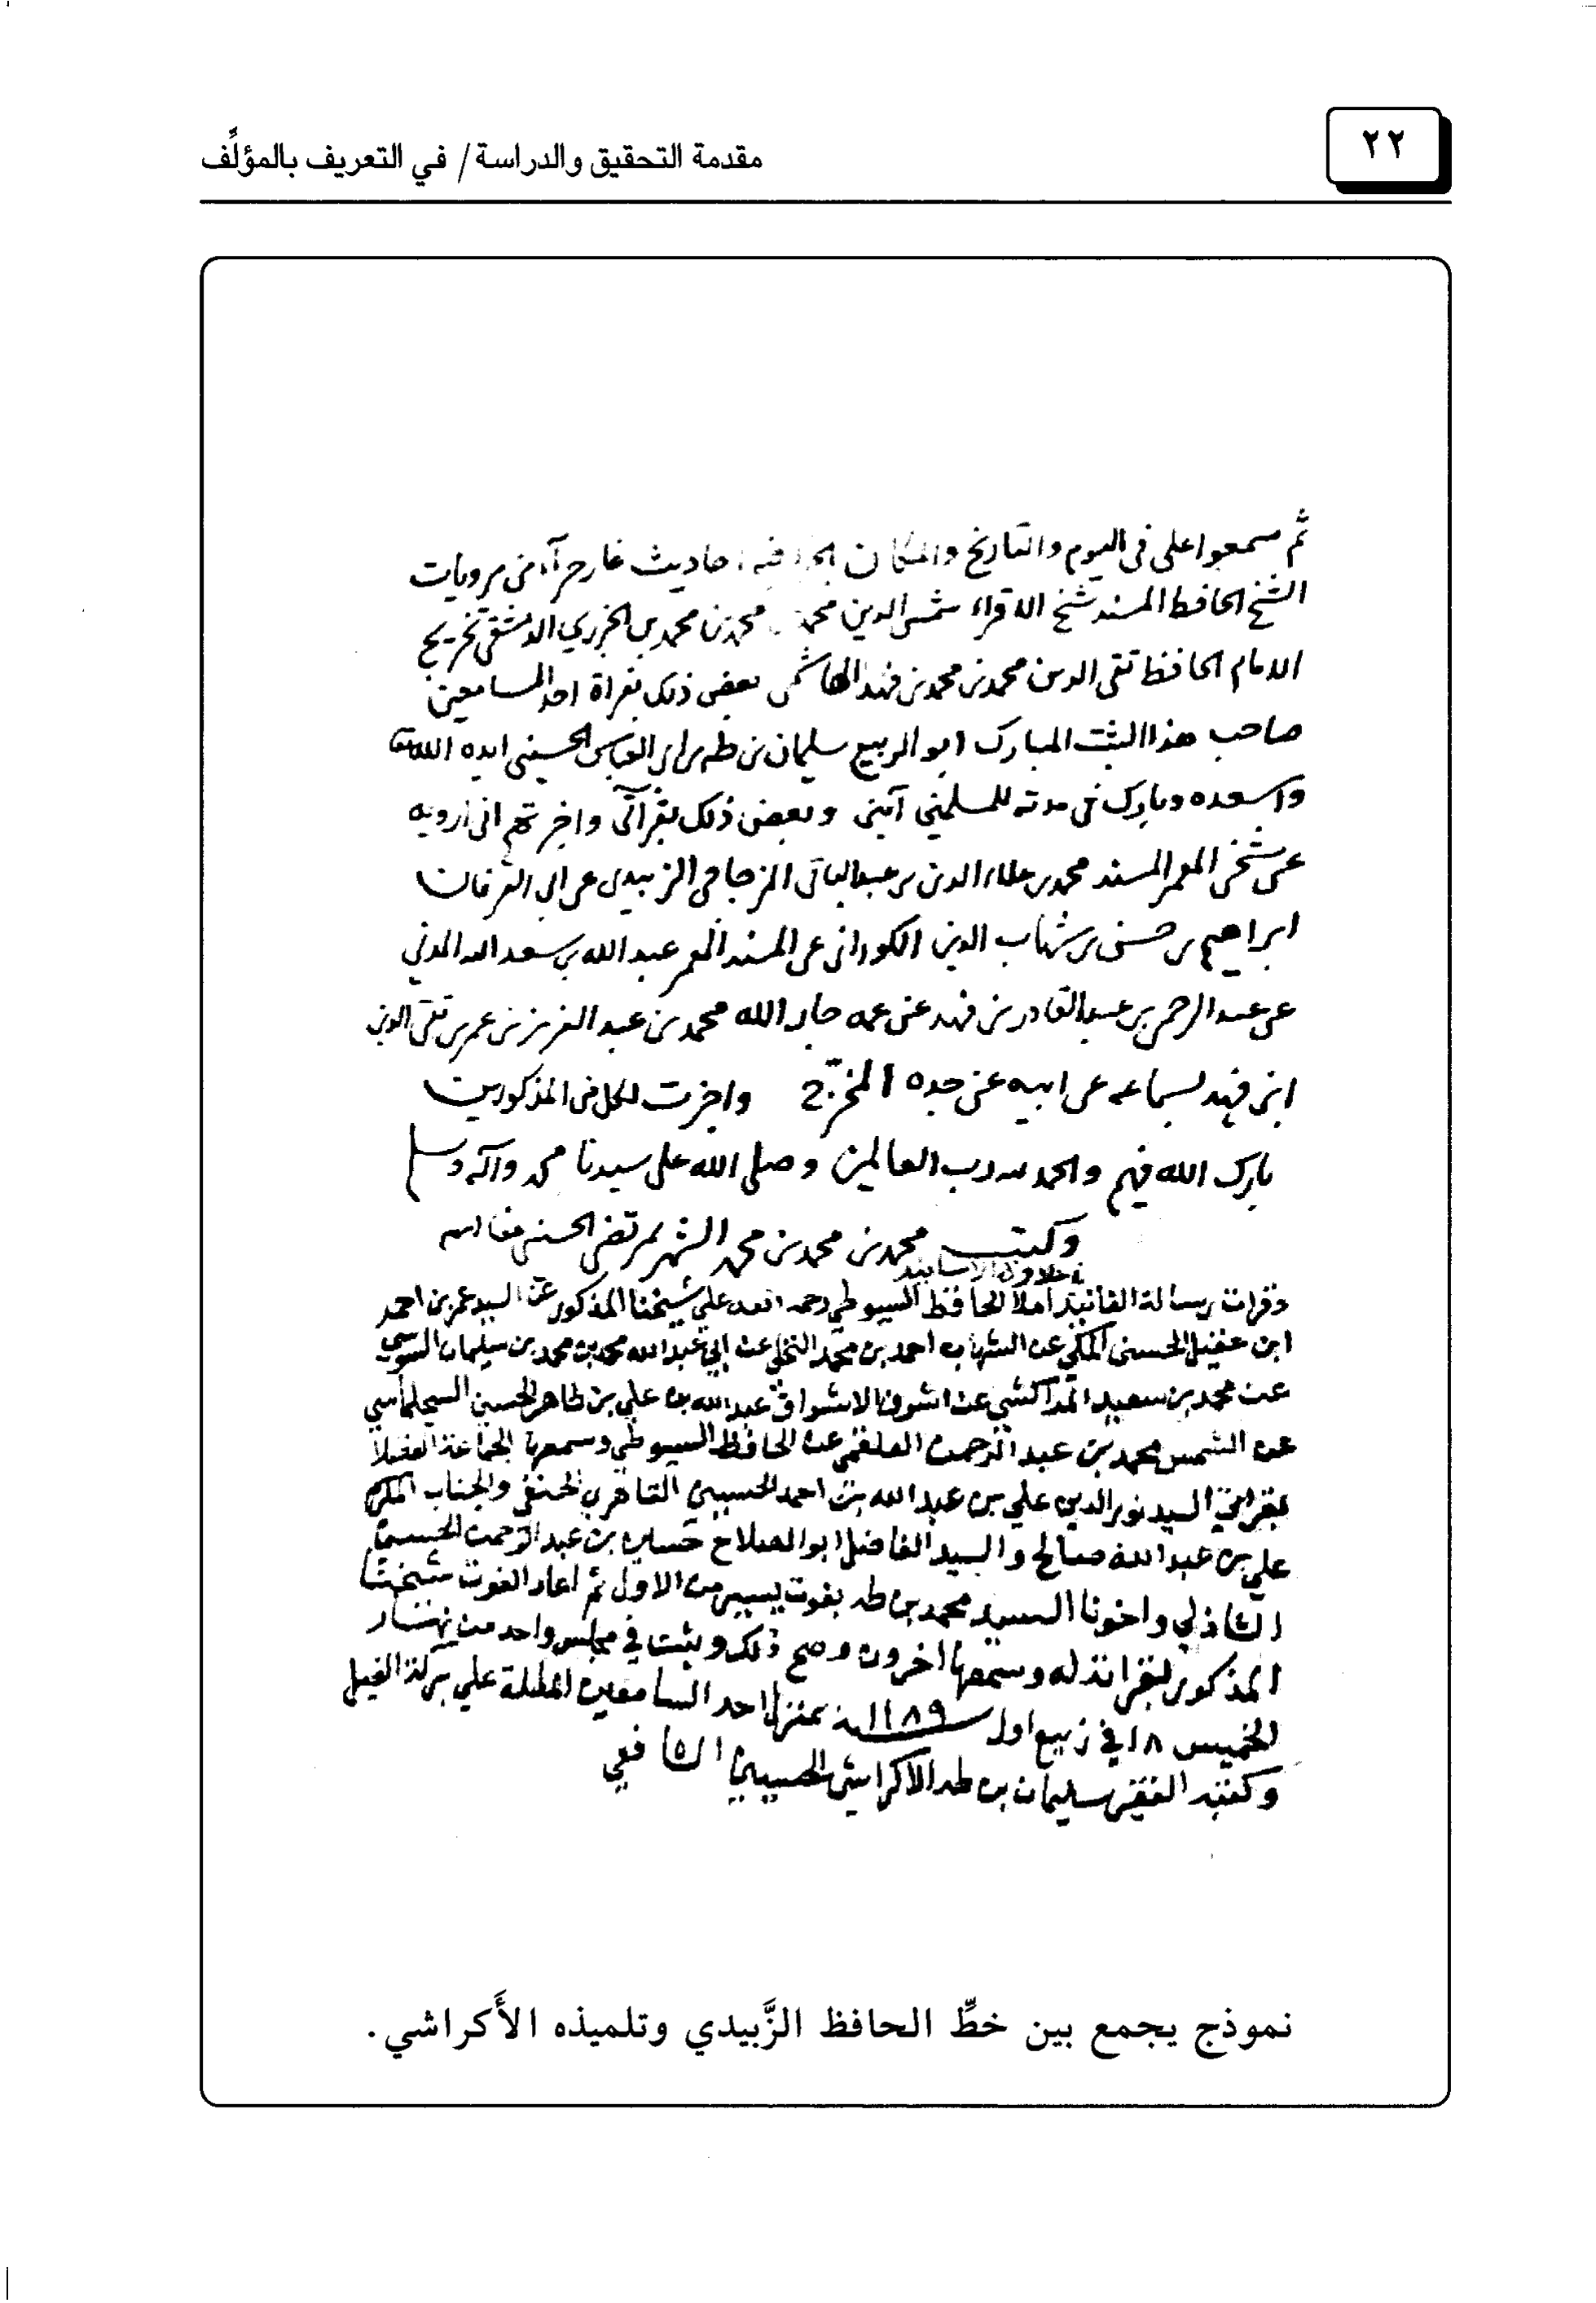 ٢٢
مقدمة التحقيق والدراسة / في التعريف بالمؤلِّف
ثم سمعوا على في اليوم والتاريخ والمكان احاديث من مرويات
الشيخ الحافظ المسند شيخ الاقراء شمس الدين محمد بن محمد بن محمد بن الجزري الدمشقي تخريج
الامام الحافظ تقي الدين محمد بن محمد بن فهد الهاشمي بعض ذلك بقراة احد السامعين
صاحب هذا الثبت المبارك ابو الربيع سليمان بن طه بن ابي العباس الحسيني ايده الله تعا
واسعده وبارك في مدته للمسلمين آمين وبعض ذلك بقراتى واخبرتهم انى ارويه
عن شيخى المعمر المسند محمد بن علاء الدين بن عبد الباقى المزجاجى الزبيدى عن ابى العرفان
ابراهيم بن حسن بن شهاب الدين الكورانى عن المسند المعمر عبد الله بن سعد الله المدني
عن عبد الرحمن بن عبد القادر بن فهد عن عمه جار الله محمد بن عبد العزيز بن عمر بن تقى الدين
ابن فهد لسماعه عن ابيه عن جده المخرج واجزت لكل من المذكورين
بارك الله فيهم والحمد لله رب العالمين وصلى الله على سيدنا محمد وآله وسلم
وكتب محمد بن محمد بن محمد الشهير بمرتضى الحسيني
وقرات رسالة الحافظ السيوطي رحمه الله على شيخنا المذكور عن السيد عمر بن احمد
ابن عقيل الحسيني المكي عن الشهاب احمد بن محمد النخلي عن ابي عبد الله محمد بن محمد بن سليمان السوسي
عن محمد بن سعيد المراكشي عن اشرف الاشراف عبد الله بن علي بن طاهر الحسني السجلماسي
عن الشمس محمد بن عبد الرحمن العلقمي عن الحافظ السيوطي وسمعها الجماعة الفضلا
بقراتي السيد نور الدين علي بن عبد الله بن احمد الحسيني القاهري الحنفي والجناب المكرم
علي بن عبد الله صالح والسيد الفاضل ابو الصلاح بن عبد الرحمن الحسيني
الشاذلي واخونا السيد محمد بن طه بفوت يسير من الاول ثم اعاد الفوت شيخنا
المذكور بقراته له وسمعها اخرون وصح ذلك وثبت في مجلس واحد من نهار
الخميس ١٨ في ربيع اول سنة ١١٨٩ بمنزل احد السامعين المطلة على بركة الفيل
وكتبه الفقير سليمان بن طه الاكراشي الحسيني الشافعي
نموذج يجمع بين خطِّ الحافظ الزَّبيدي وتلميذه الأَكراشي.